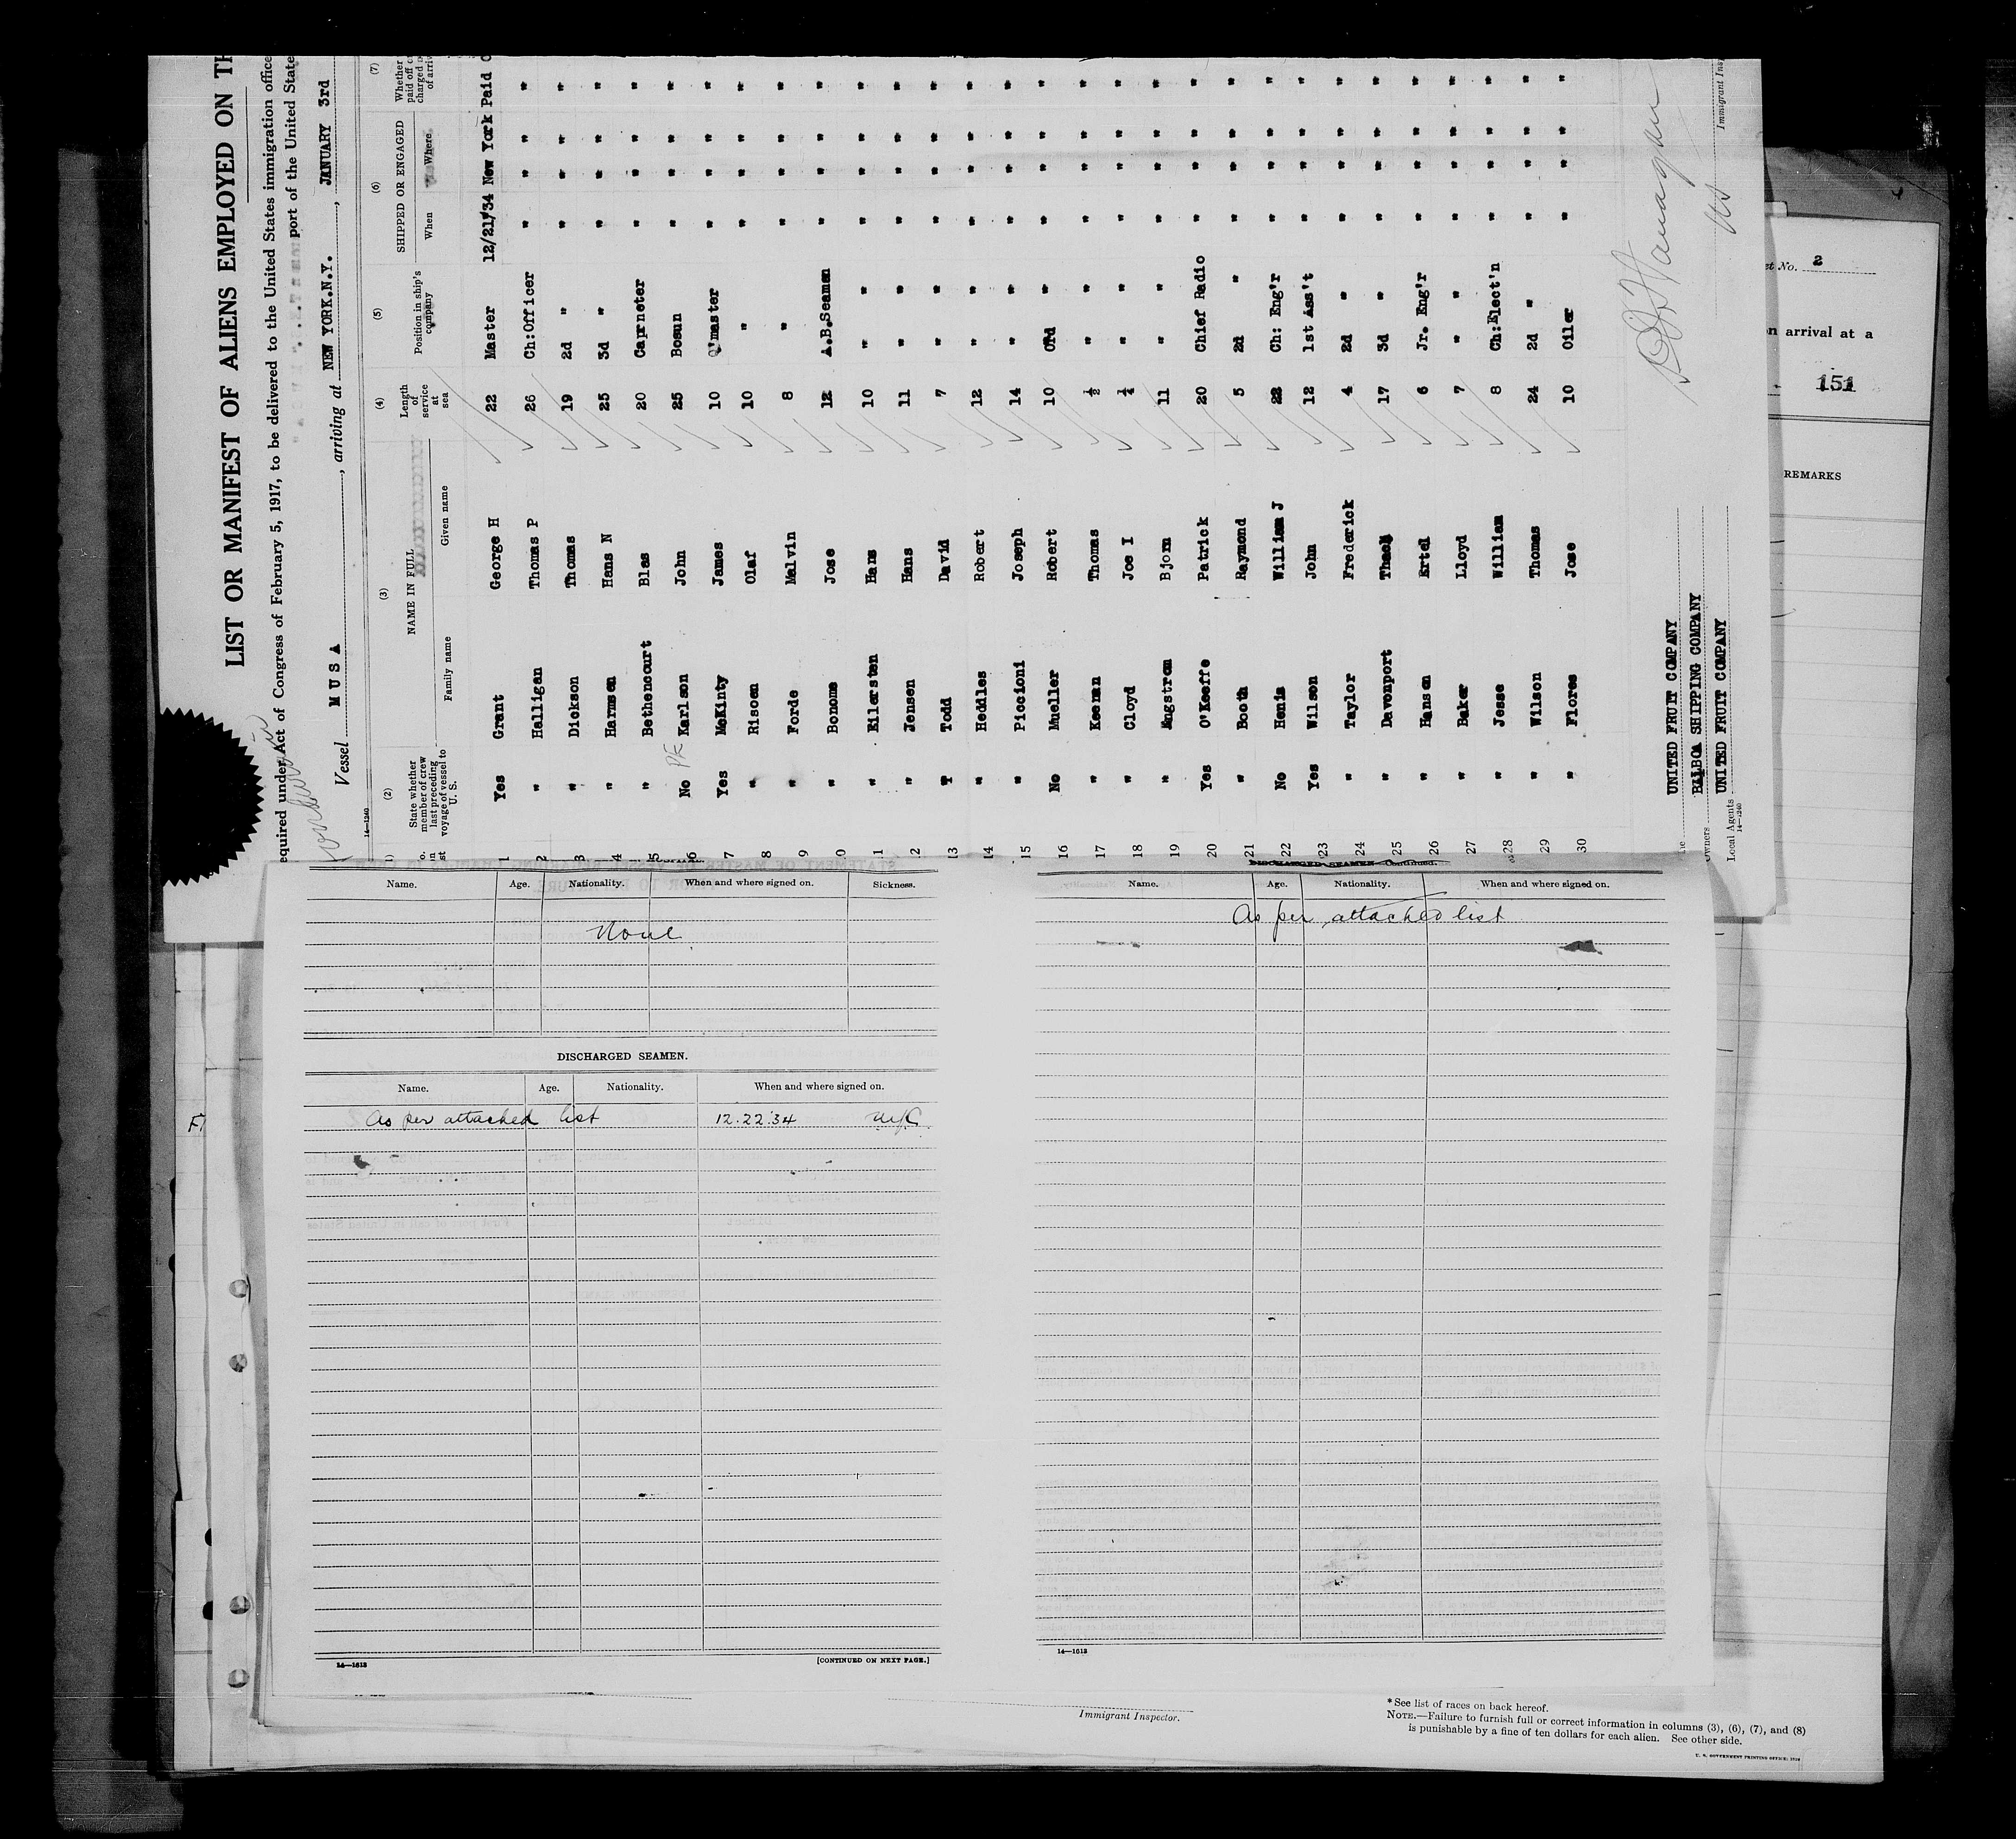 LIST OR MANIFEST OF ALIENS EMPLOYED ON TH
equired under Act of Congress of February 5, 1917, to be delivered to the United States immigration office
port of the United State
Vessel MUSA, arriving at NEW YORK.N.Y., JANUARY 3rd
14—1240
(2) (3) (4) (5) (6) (7)
State whether member of crew last preceding voyage of vessel to U. S.
NAME IN FULL
Family name Given name
Length of service at sea
Position in ship's company
SHIPPED OR ENGAGED
When Where
Whether paid off
1 Yes Grant George H 22 Master 12/21/34 New York Paid
2 " Halligan Thomas P 26 Ch:Officer " " " "
3 " Dickson Thomas 19 2d " " " " "
4 " Harmsen Hans N 25 3d " " " " "
5 " Bethencourt Blas 20 Carpneter " " " "
6 No PE Karlson John 25 Bosun " " " "
7 Yes McKinty James 10 Q'master " " " "
8 " Risoen Olaf 10 " " " " "
9 " Forde Malvin 8 " " " " "
10 " Bonome Jose 12 A.B.Seaman " " " "
11 " Eilersten Hans 10 " " " " " "
12 " Jensen Hans 11 " " " " " "
13 " Todd David 7 " " " " " "
14 " Heddles Robert 12 " " " " " "
15 " Piccioni Joseph 14 " " " " " "
16 No Mueller Robert 10 Ord " " " " "
17 " Keenan Thomas ½ " " " " " "
18 " Cloyd Joe I ¼ " " " " " "
19 " Angstrom Bjorn 11 " " " " " "
20 Yes O'Keeffe Patrick 20 Chief Radio " " " "
21 " Booth Raymond 5 2d " " " " "
22 No Henis William J 22 Ch: Eng'r " " " "
23 Yes Wilson John 12 1st Ass't " " " "
24 " Taylor Frederick 4 2d " " " " "
25 " Davonport 17 3d " " " " "
26 " Hansen Ertel 6 Jr. Eng'r " " " "
27 " Baker Lloyd 7 " " " " " "
28 " Jesse William 8 Ch:Elect'n " " " "
29 " Wilson Thomas 24 2d " " " " "
30 " Flores Jose 10 Oiler " " " "
UNITED FRUIT COMPANY
Owners BALBOA SHIPPING COMPANY
Local Agents UNITED FRUIT COMPANY
14—1240
Immigrant Insp
No. 2
n arrival at a
151
REMARKS
Name. Age. Nationality. When and where signed on. Sickness.
None
DISCHARGED SEAMEN.
Name. Age. Nationality. When and where signed on.
As per attached list 12.22.34 NYC
14—1613
[CONTINUED ON NEXT PAGE.]
DISCHARGED SEAMEN—Continued.
Name. Age. Nationality. When and where signed on.
As per attached list
14—1613
Immigrant Inspector.
*See list of races on back hereof.
NOTE.—Failure to furnish full or correct information in columns (3), (6), (7), and (8)
is punishable by a fine of ten dollars for each alien. See other side.
U. S. GOVERNMENT PRINTING OFFICE: 1934